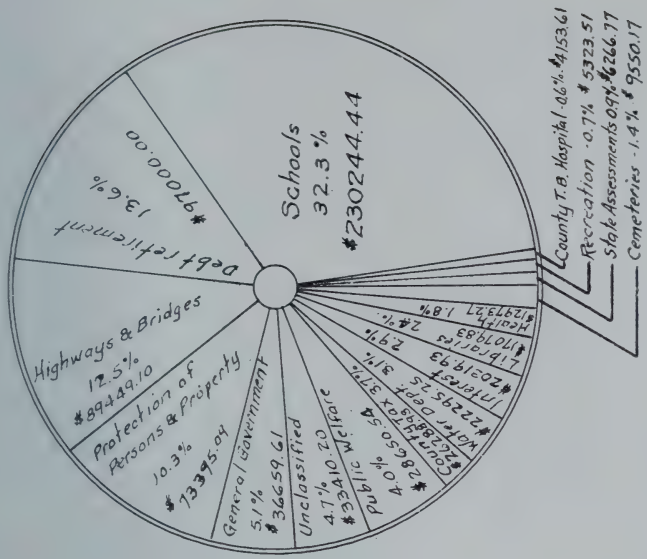 Schools
32.3%
$230244.44
Debt retirement
13.6%
$97000.00
Highways & Bridges
12.5%
$89449.10
Protection of
Persons & Property
10.3%
$73395.04
General Government
5.1%
$36659.61
Unclassified
4.7%
$33410.20
Public Welfare
4.0%
$28650.54
County Tax 3.7%
Water Dept. 3.1%
$22295.25
Interest 2.9%
$20219.93
Libraries 2.4%
$17079.83
Health 1.8%
$12973.27
County T.B. Hospital - 0.6% - $4153.61
Recreation - 0.7% $5323.51
State Assessments 0.9% - $6266.77
Cemeteries - 1.4% $9550.17